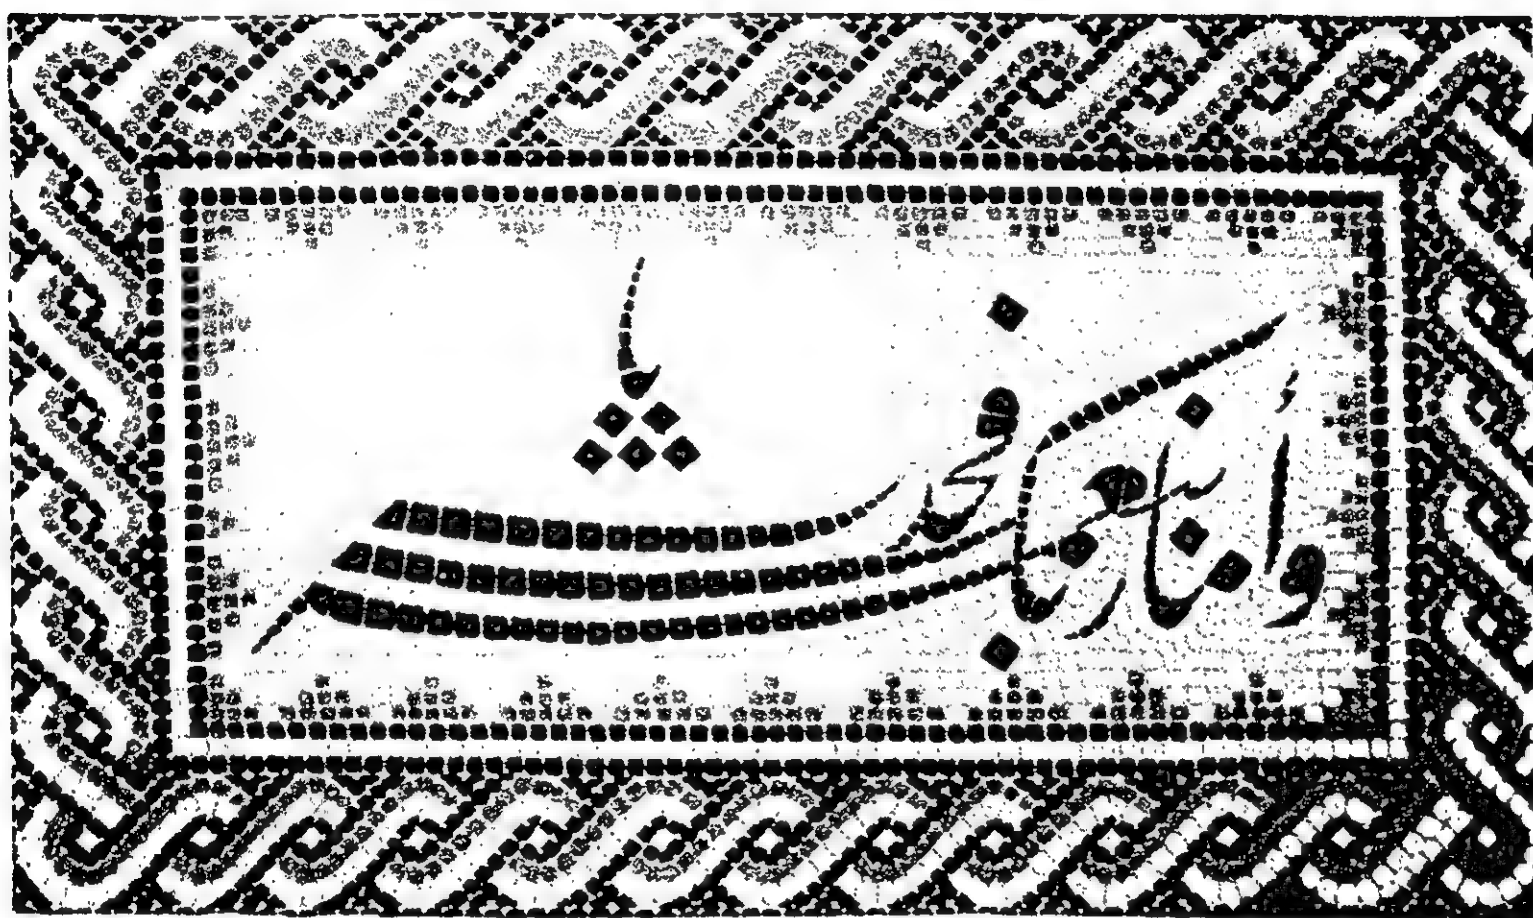 وأما بنعمت ربك فحدث